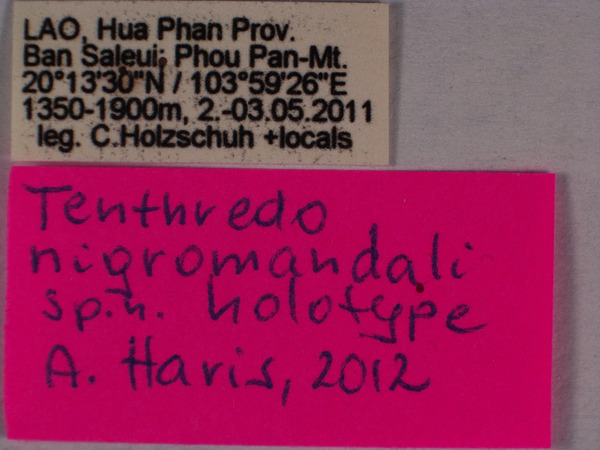 LAO, Hua Phan Prov.
Ban Saleui; Phou Pan-Mt.
20°13'30"N / 103°59'26"E
1350-1900m, 2.-03.05.2011
leg. C.Holzschuh +locals
Tenthredo
nigromandali
sp.n. holotype
A. Haris, 2012